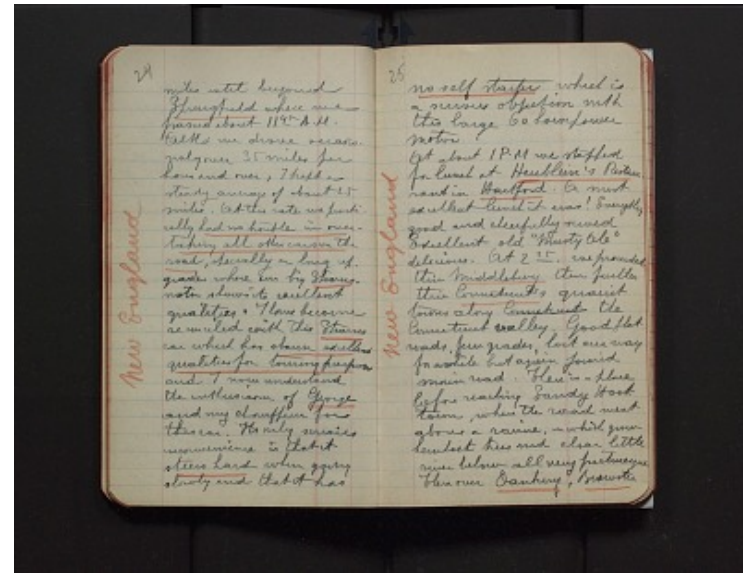 24
miles until beyond
Springfield where we
passed about 11 45 A.M.
Altho we drove occasio-
nally over 35 miles per
hour and over, I kept a
steady average of about 25
miles. At this rate we practi-
cally had no trouble in over-
taking all other cars on the
road, specially on long up
grades where our big Stearns
motor shows its excellent
qualities. I have become
reconciled with this Stearns
car which has shown excellent
qualities for touring purposes
and I now understand
the enthusiasm of George
and my chauffeur for
this car. Its only serious
inconvenience is that it
steers hard when going
slowly and that it has
New England
25
no self starter which is
a serious objection with
this large 60 horsepower
motor.
At about 1 P.M we stopped
for lunch at Heublein's Restau-
rant in Hartford. A most
excellent lunch it was! Everything
good and cheerfully served
Excellent old "Musty Ale"
delicious. At 2 15 we proceeded
thru Middlebury then further
thru Connecticut's quaint
towns along Connecticut the
Connecticut valley. Good flat
roads, few grades, lost our way
for awhile but again found
main road. There is a place
before reaching Sandy Hook
town, where the road went
above a ravine, in which grew
hemlock trees and clear little
river below all very picturesque
Then over Danbury, Brewster
New England